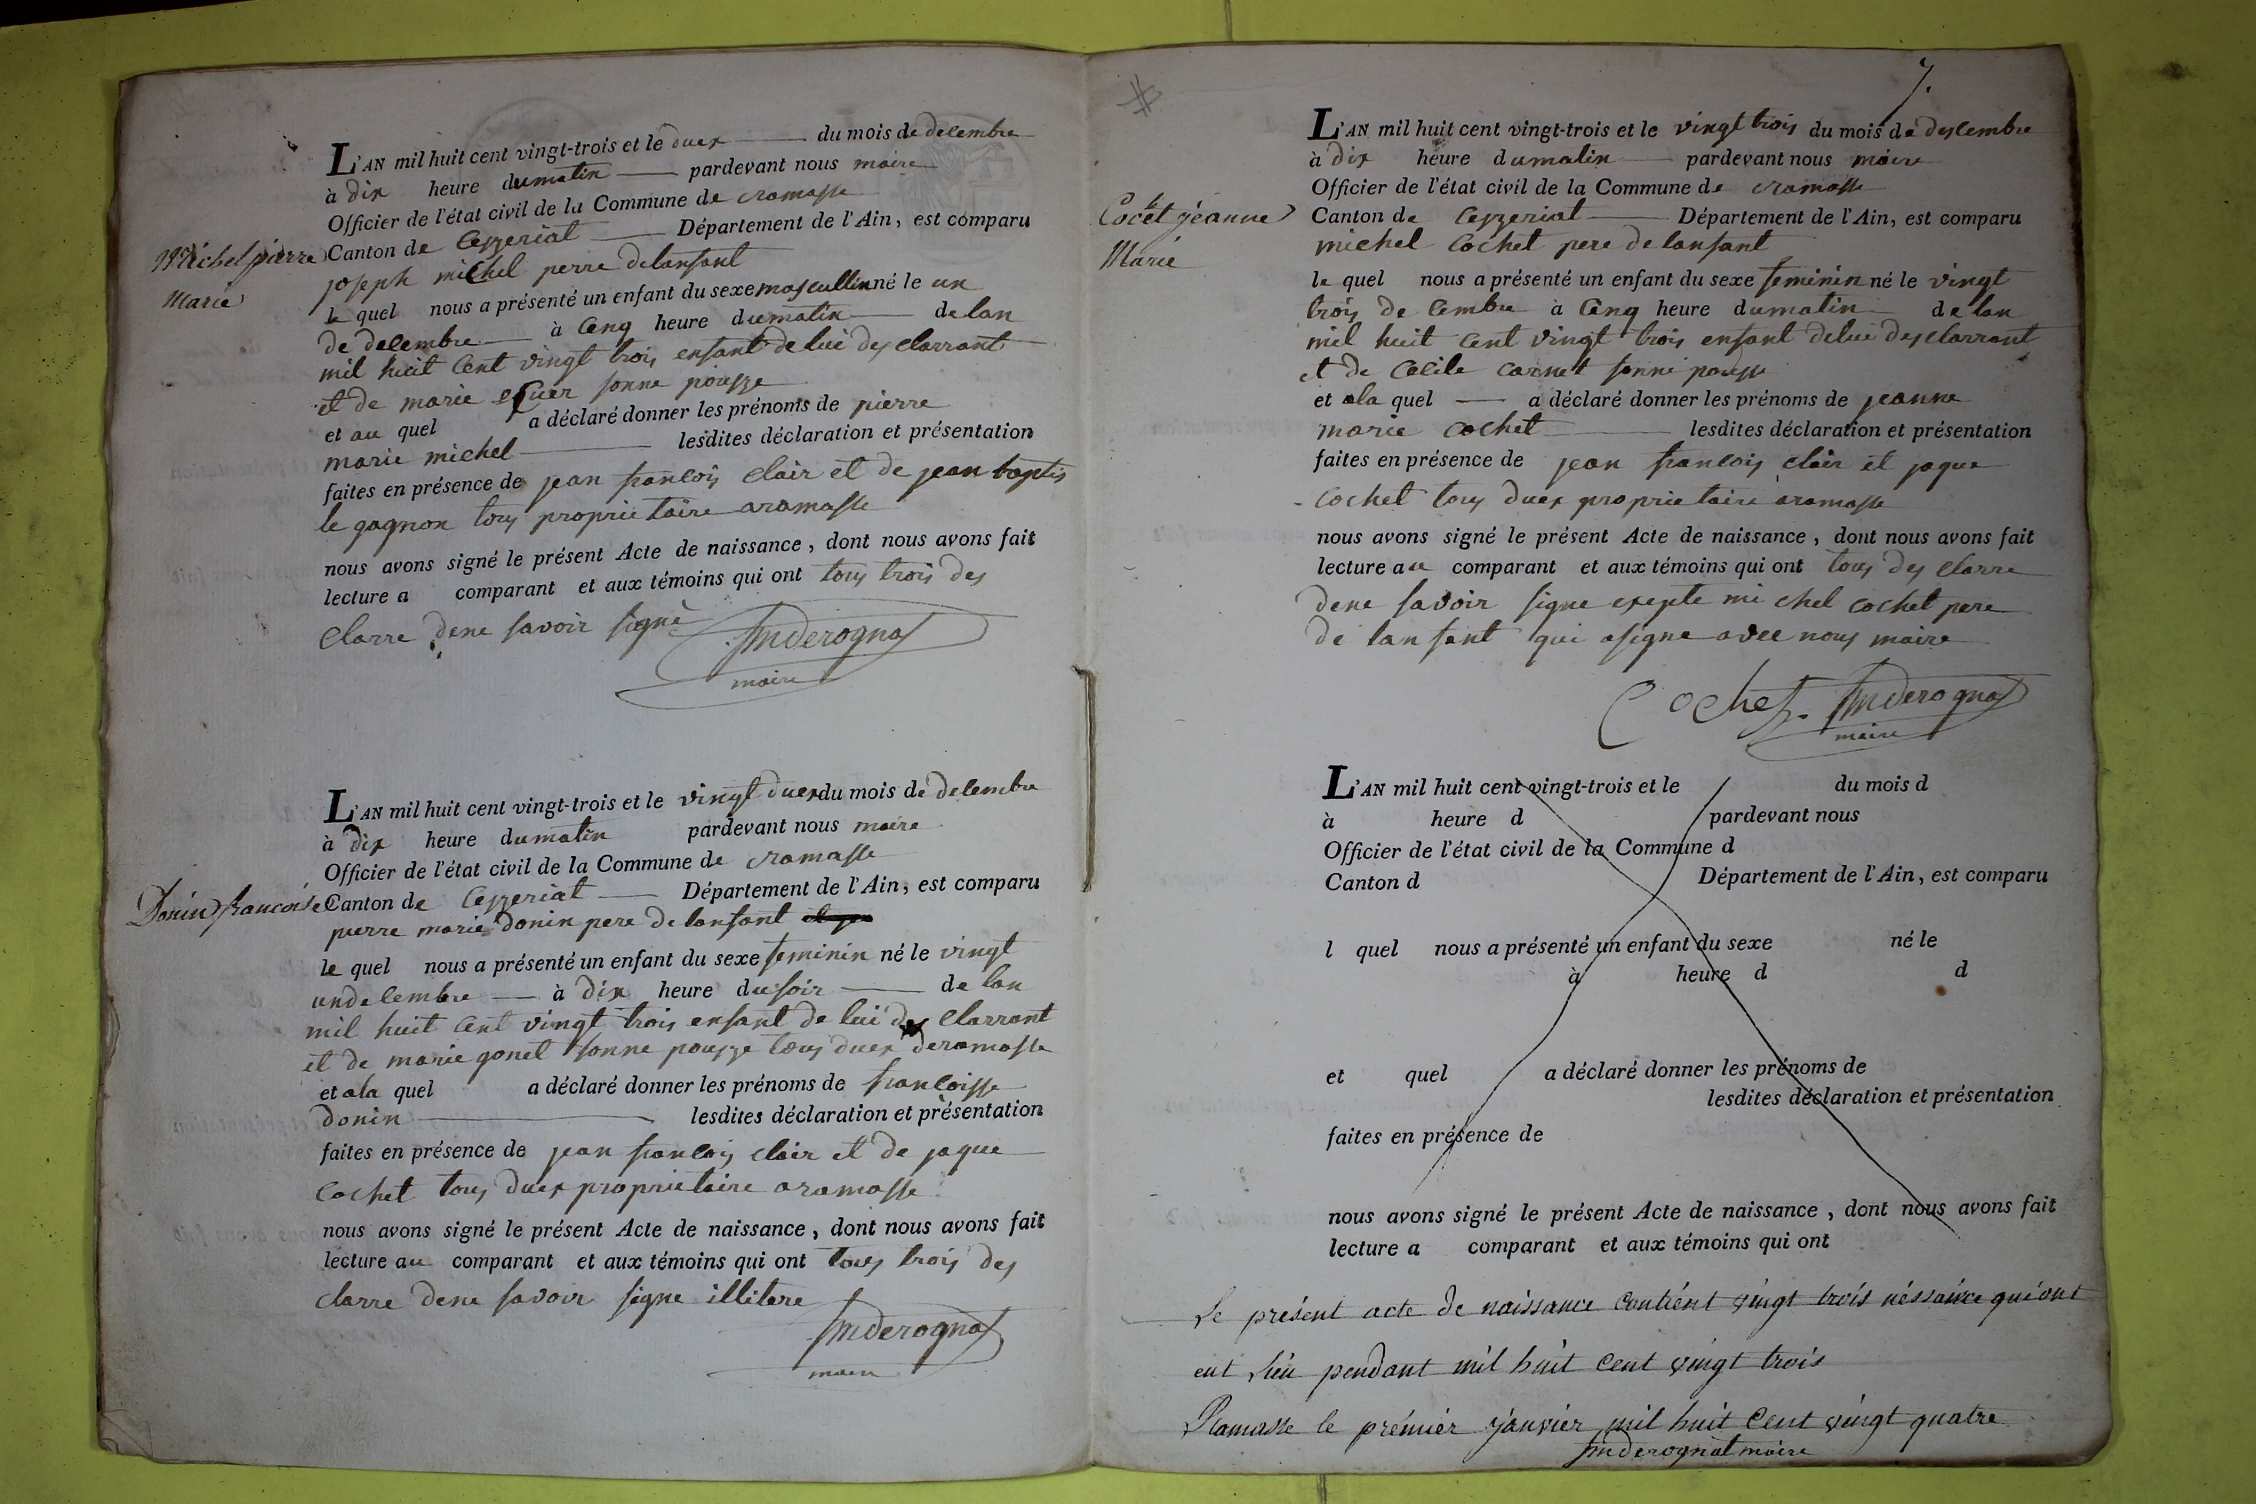 L'AN mil huit cent vingt-trois et le duex du mois de decembre
à dix heure dumatin pardevant nous maire
Officier de l'état civil de la Commune de ramasse
Canton de Ceyzeriat Département de l'Ain, est comparu
Michel pierre
Marie
joseph michel perre delansant
le quel nous a présenté un enfant du sexe mascullin né le un
de decembre à cenq heure dumatin de lan
mil huit cent vingt trois enfant de lui desclarrant
et de marie sonne pouzze
et au quel a déclaré donner les prénoms de pierre
marie michel lesdites déclaration et présentation
faites en présence de jean francois clair et de jean baptis
le gagnon tous proprietaire aramasse
nous avons signé le présent Acte de naissance, dont nous avons fait
lecture a comparant et aux témoins qui ont tous trois des
clarre dene savoir signé
maire
L'AN mil huit cent vingt-trois et le vingt duex du mois de decembre
à dix heure dumatin pardevant nous maire
Officier de l'état civil de la Commune de ramasse
Donin francoise
Canton de Ceyzeriat Département de l'Ain, est comparu
pierre marie donin pere de lansant
le quel nous a présenté un enfant du sexe feminin né le vingt
undecembre à dix heure dusoir de lan
mil huit cent vingt trois enfant de lui des clarrant
et de marie gonet sonne pouzze tous duex deramasse
et ala quel a déclaré donner les prénoms de francoisse
donin lesdites déclaration et présentation
faites en présence de jean francois clair et de jaque
cochet tous duex proprietaire aramasse
nous avons signé le présent Acte de naissance, dont nous avons fait
lecture au comparant et aux témoins qui ont tous trois des
clarre dene savoir signe illitere
maire
7.
L'AN mil huit cent vingt-trois et le vingt trois du mois de descembre
à dix heure dumatin pardevant nous maire
Officier de l'état civil de la Commune de ramasse
Cochet jeanne
Marie
Canton de Ceyzeriat Département de l'Ain, est comparu
michel cochet pere de lansant
le quel nous a présenté un enfant du sexe feminin né le vingt
trois de cembre à cenq heure dumatin de lan
mil huit cent vingt trois enfant delui desclarrant
et de cecile carnet sonne pousse
et ala quel a déclaré donner les prénoms de jeanne
marie cochet lesdites déclaration et présentation
faites en présence de jean francois clair et jaque
cochet tous duex proprietaire aramasse
nous avons signé le présent Acte de naissance, dont nous avons fait
lecture au comparant et aux témoins qui ont tous des clarre
dene savoir signe exepte mi chel cochet pere
de lansant qui asigne avec nous maire
Cochet
maire
L'AN mil huit cent vingt-trois et le du mois d
à heure d pardevant nous
Officier de l'état civil de la Commune d
Canton d Département de l'Ain, est comparu
l quel nous a présenté un enfant du sexe né le
à heure d d
et quel a déclaré donner les prénoms de
lesdites déclaration et présentation
faites en présence de
nous avons signé le présent Acte de naissance, dont nous avons fait
lecture a comparant et aux témoins qui ont
Le présent acte de naissance contient vingt trois néssaince qui ont
eut lieu pendant mil huit cent vingt trois
Ramasse le prémiér janviér mil huit cent vingt quatre
maire